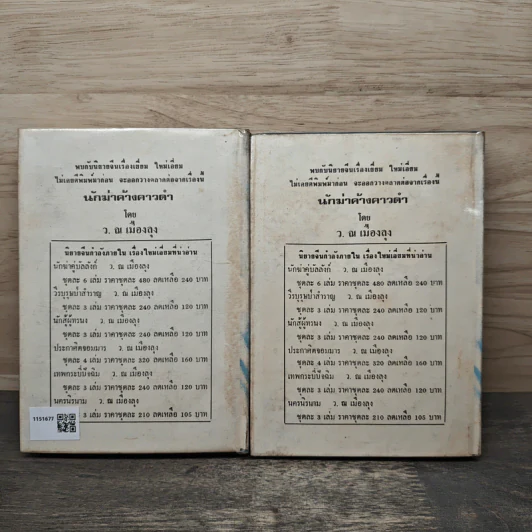 พบกับนิยายจีนเรื่องเยี่ยม ใหม่เอี่ยม
ไม่เคยตีพิมพ์มาก่อน จะออกวางตลาดต่อจากเรื่องนี้
นักฆ่าค้างคาวดำ
โดย
ว. ณ เมืองลุง
นิยายจีนกำลังภายใน เรื่องใหม่เอี่ยมที่น่าอ่าน
นักฆ่าคู่บัลลังก์ ว. ณ เมืองลุง
ชุดละ 6 เล่ม ราคาชุดละ 480 ลดเหลือ 240 บาท
วีรบุรุษบ้าสำราญ ว. ณ เมืองลุง
ชุดละ 3 เล่ม ราคาชุดละ 240 ลดเหลือ 120 บาท
นักสู้ผู้ทรนง ว. ณ เมืองลุง
ชุดละ 3 เล่ม ราคาชุดละ 240 ลดเหลือ 120 บาท
ประกาศิตจอมมาร ว. ณ เมืองลุง
ชุดละ 4 เล่ม ราคาชุดละ 320 ลดเหลือ 160 บาท
เทพกระบี่บังฉิม ว. ณ เมืองลุง
ชุดละ 3 เล่ม ราคาชุดละ 240 ลดเหลือ 120 บาท
นครนิรนาม ว. ณ เมืองลุง
ละ 3 เล่ม ราคาชุดละ 210 ลดเหลือ 105 บาท
1151677
พบกับนิยายจีนเรื่องเยี่ยม ใหม่เอี่ยม
ไม่เคยตีพิมพ์มาก่อน จะออกวางตลาดต่อจากเรื่องนี้
นักฆ่าค้างคาวดำ
โดย
ว. ณ เมืองลุง
นิยายจีนกำลังภายใน เรื่องใหม่เอี่ยมที่น่าอ่าน
นักฆ่าคู่บัลลังก์ ว. ณ เมืองลุง
ชุดละ 6 เล่ม ราคาชุดละ 480 ลดเหลือ 240 บาท
วีรบุรุษบ้าสำราญ ว. ณ เมืองลุง
ชุดละ 3 เล่ม ราคาชุดละ 240 ลดเหลือ 120 บาท
นักสู้ผู้ทรนง ว. ณ เมืองลุง
ชุดละ 3 เล่ม ราคาชุดละ 240 ลดเหลือ 120 บาท
ประกาศิตจอมมาร ว. ณ เมืองลุง
ชุดละ 4 เล่ม ราคาชุดละ 320 ลดเหลือ 160 บาท
เทพกระบี่บังฉิม ว. ณ เมืองลุง
ชุดละ 3 เล่ม ราคาชุดละ 240 ลดเหลือ 120 บาท
นครนิรนาม ว. ณ เมืองลุง
ชุดละ 3 เล่ม ราคาชุดละ 210 ลดเหลือ 105 บาท